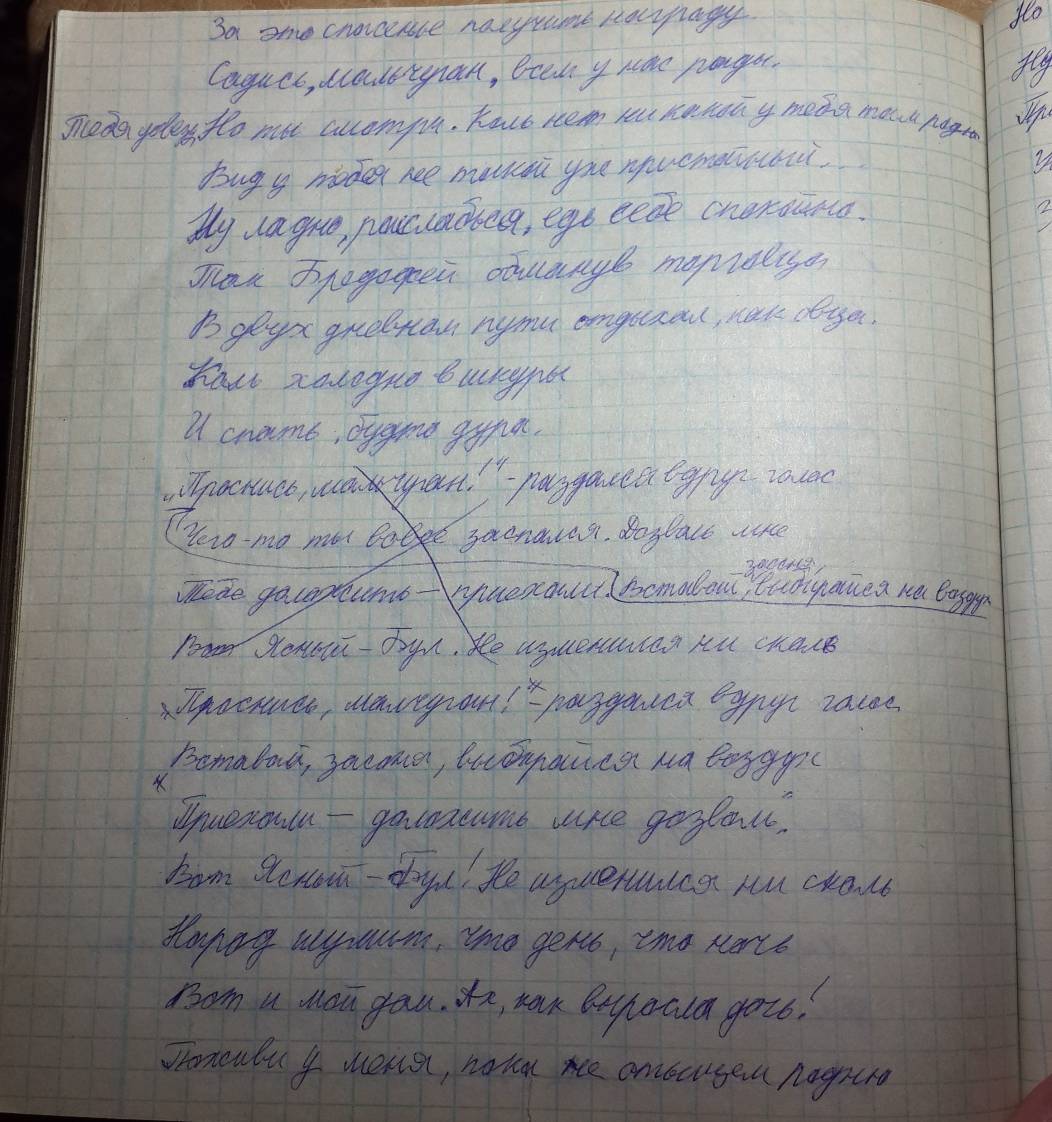 За это спасенье получить награду.
Садись, мальчуган, всем у нас рады.
Тебя увезу Но ты смотри. Коль нет никакой у тебя там родни
Вид у тебя не такой уж пристойный...
Ну ладно, расслабься, едь себе спокойно.
Так Бредофей обманув торговца
В двух дневном пути отдыхал, как овца.
Коль холодно в шкуры
И спать, будто дура.
„Проснись, мальчуган!" - раздался вдруг голос
Чего-то ты вовсе заспался. Дозволь мне
Тебе доложить - приехали. Вставай, засоня, выбирайся на воздух
Вот Ясный - Бул. Не изменился ни сколь
"Проснись, малчуган!" - раздался вдруг голос
Вставай, засоня, выбирайся на воздух
Приехали - доложить мне дозволь".
Вот Ясный - Бул! Не изменился ни сколь
Народ шумит, что день, что ночь
Вот и мой дом. Ах, как выросла дочь!
Поживи у меня, пока не отыщем родню
Но
Ну